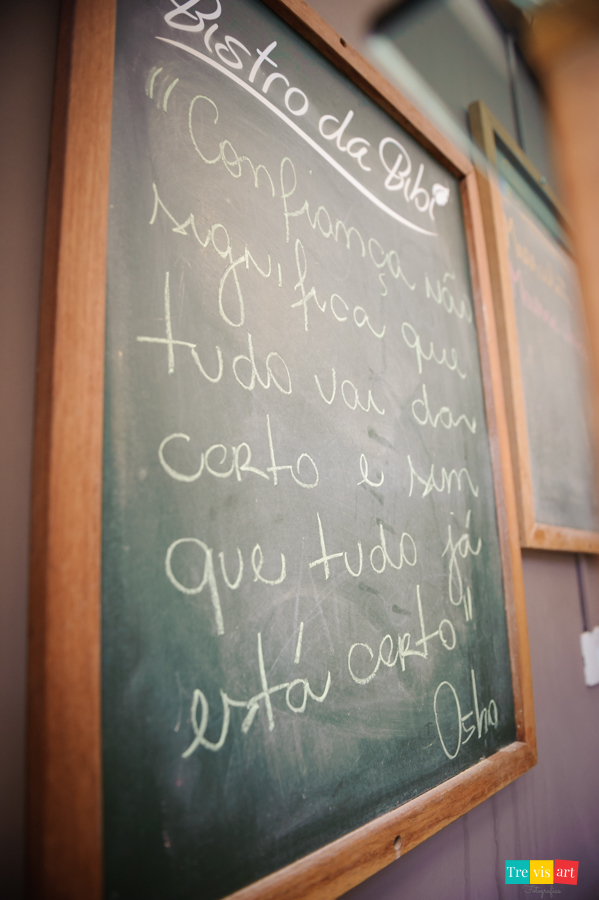 Bistro da Bibi
"Confiança não
significa que
tudo vai dar
certo e sim
que tudo já
está certo"
Osho
Tre vis art
Fotografias